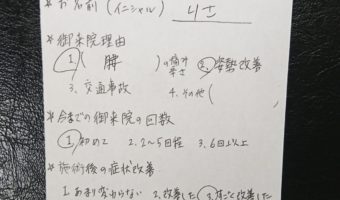 *お名前(イニシャル) りさ
*御来院理由
1.(腰)の痛み 辛さ 2.姿勢改善
3.交通事故 4.その他(
*今までの御来院の回数
1.初めて 2.2〜5回程 3.6回以上
*施術後の症状改善
1.あまり変わらない 2.改善した 3.すごく改善した